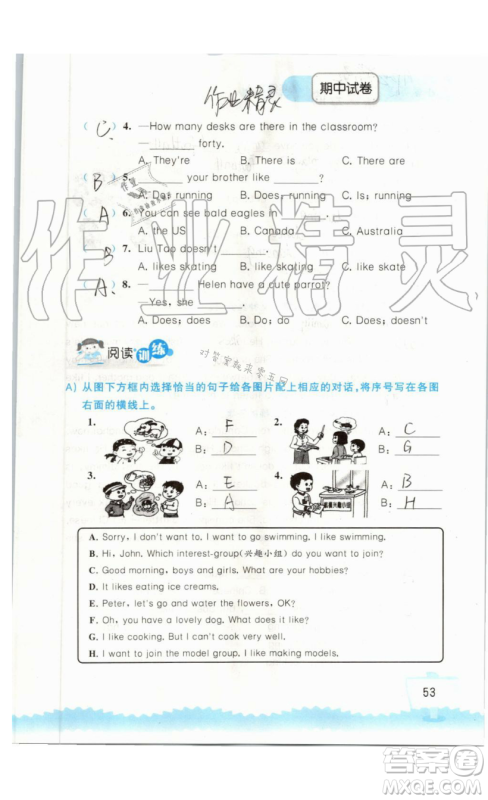 期中试卷
作业精灵
( C ) 4. —How many desks are there in the classroom?
—______ forty.
A. They're B. There is C. There are
( B ) 5. ______ your brother like ______?
A. Do; running B. Does; running C. Is; running
( A ) 6. You can see bald eagles in ______.
A. the US B. Canada C. Australia
( B ) 7. Liu Tao doesn't ______.
A. likes skating B. like skating C. like skateing
( A ) 8. —______ Helen have a cute parrot?
—Yes, she ______.
A. Does; does B. Do; do C. Does; do
阅读训练
A) 从图下方框内选择恰当的句子给各图片配上相应的对话,将序号写在各图
右面的横线上。
1. A: F 2. A: C
B: D B: G
3. A: E 4. A: B
B: A B: H
A. Sorry, I don't want to. I want to go swimming. I like swimming.
B. Hi, John. Which interest-group(兴趣小组) do you want to join?
C. Good morning, boys and girls. What are your hobbies?
D. It likes eating ice creams.
E. Peter, let's go and water the flowers, OK?
F. Oh, you have a lovely dog. What does it like?
G. I like cooking. But I can't cook very well.
H. I want to join the model group. I like making models.
53
作业精灵
答案圈
MXQE.COM